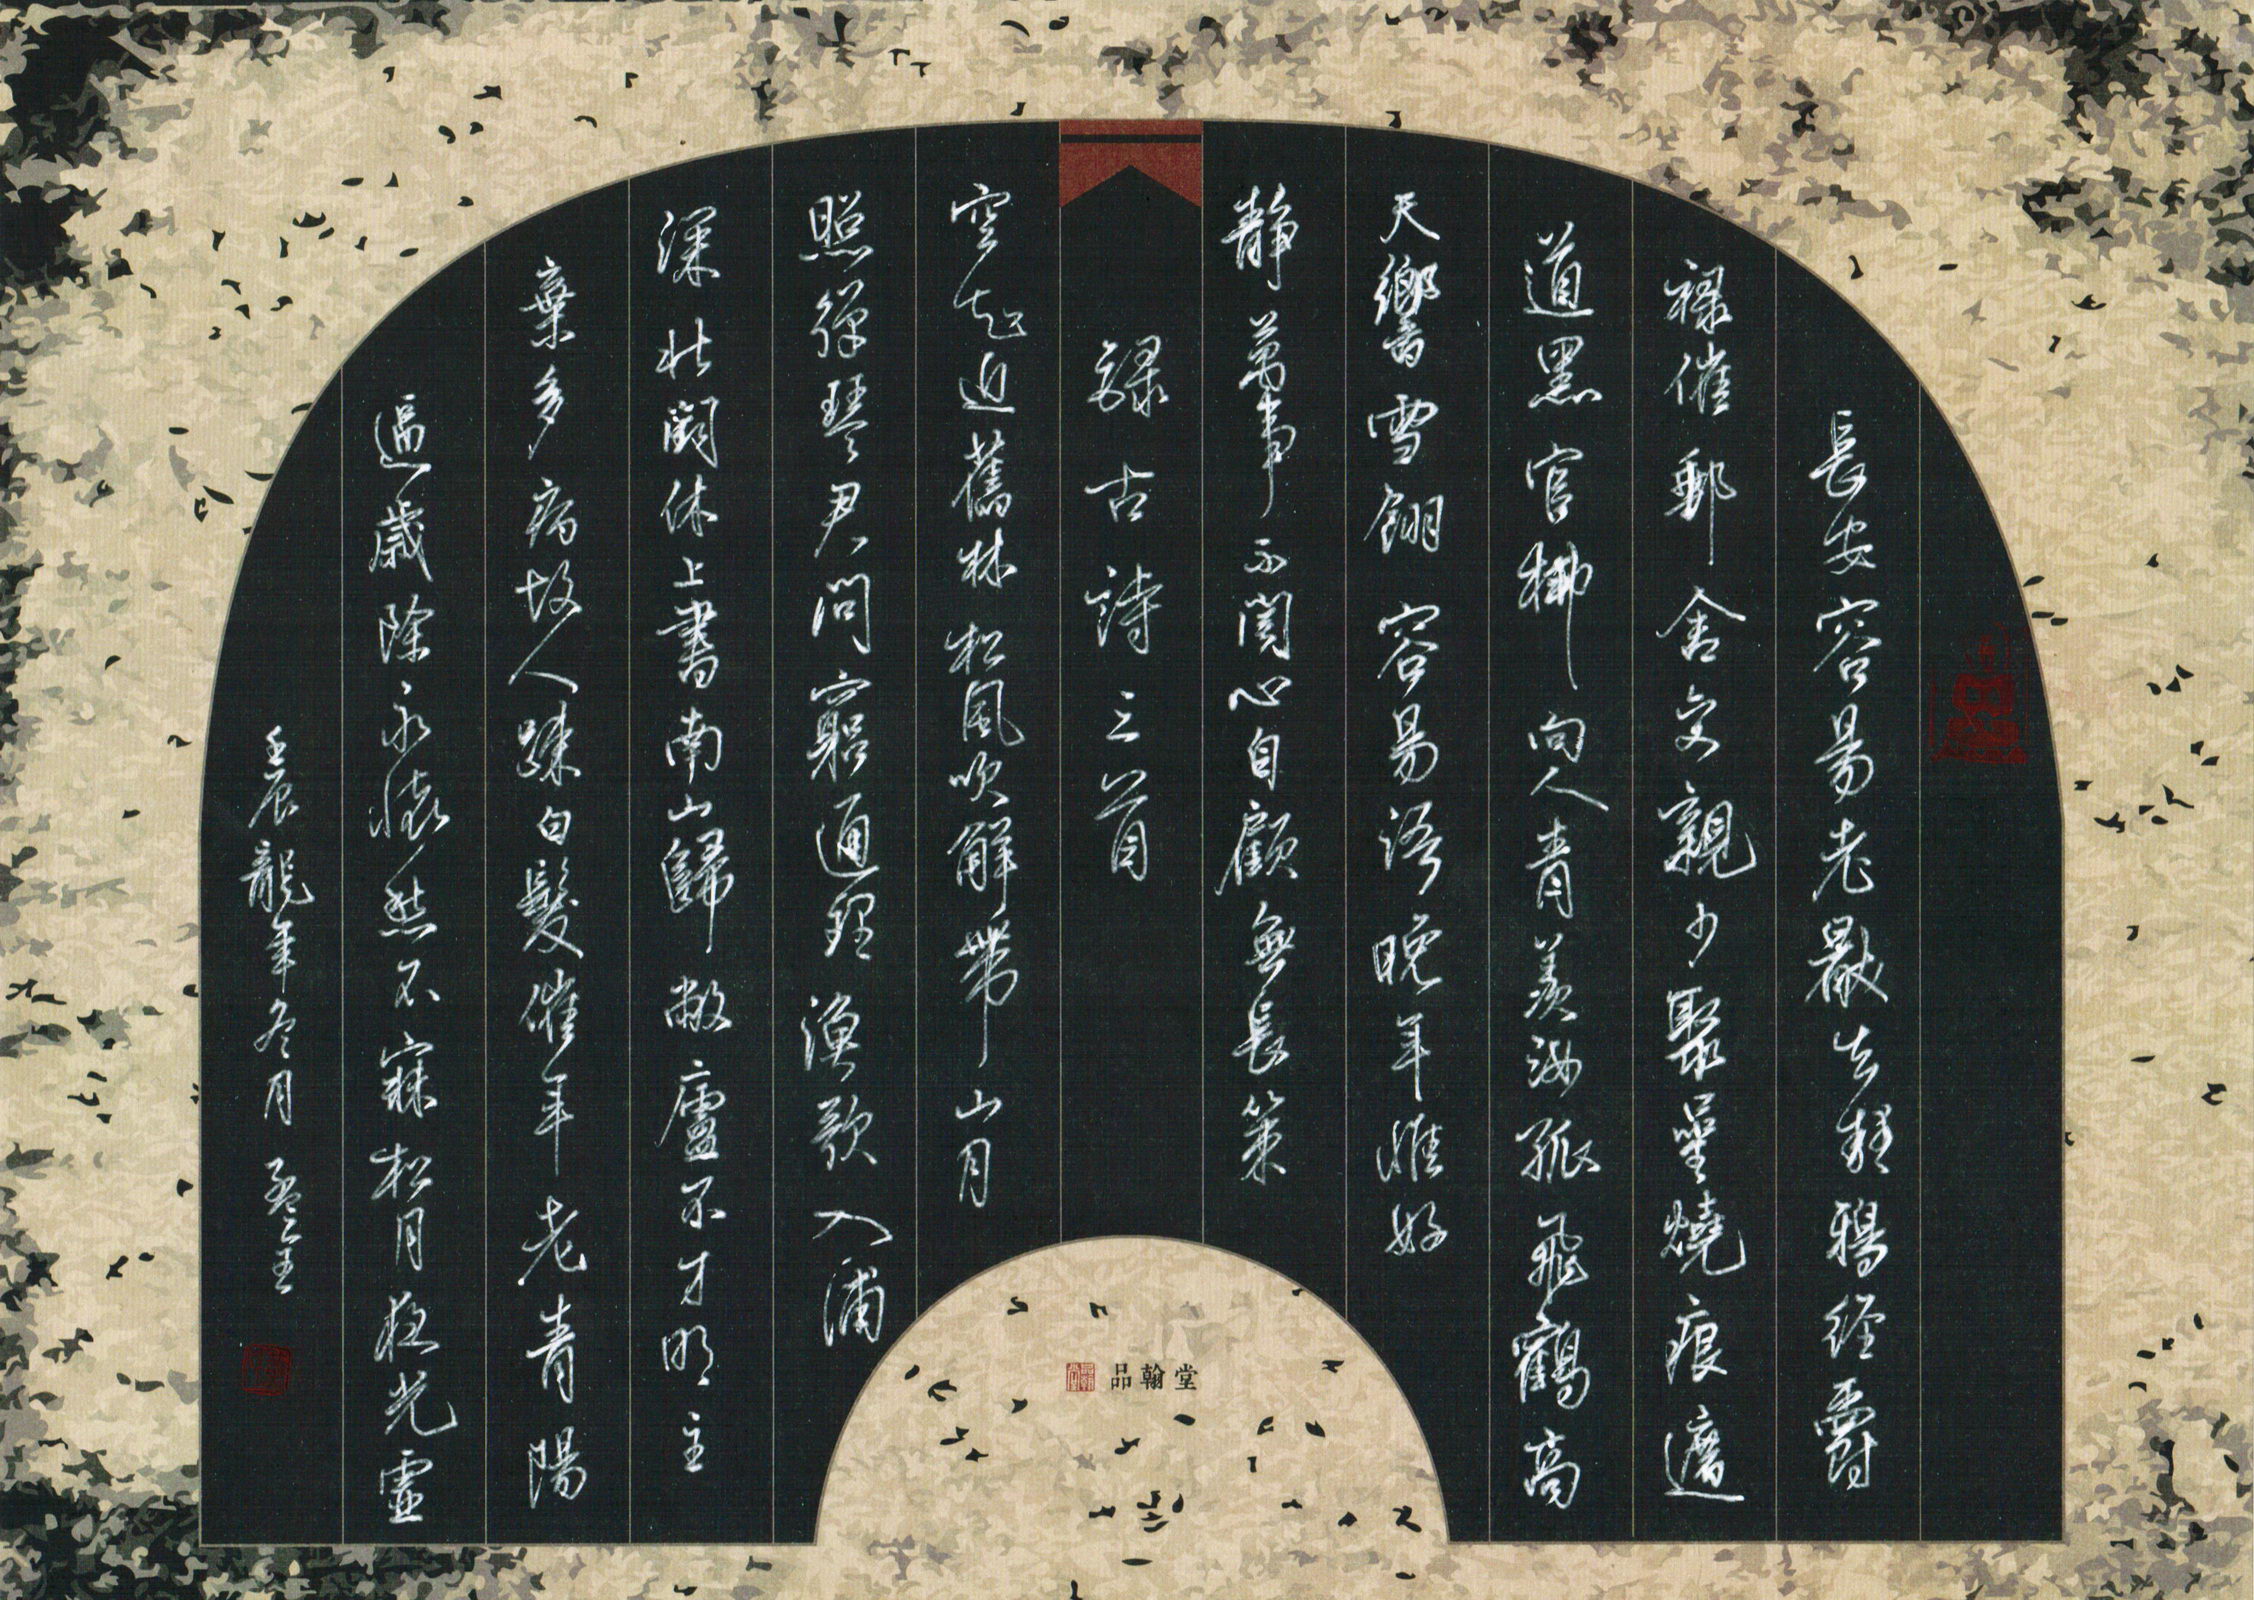 長安容易老 鴉經爵
祿催郵舍交親少聚星燒痕遮
道黑官柳向人青羨汝孤飛鶴高
天響雪翎容易 晚年惟好
靜萬事不關心自顧無長策
錄古詩三首
空知返舊林松風吹解帶山月
照彈琴君問窮通理漁歌入浦
深北闕休上書南山歸敝廬不才明主
棄多病故人疎白髮催年老青陽
逼歲除永懷愁不寐松月夜光虛
壬辰龍年冬月
品翰堂